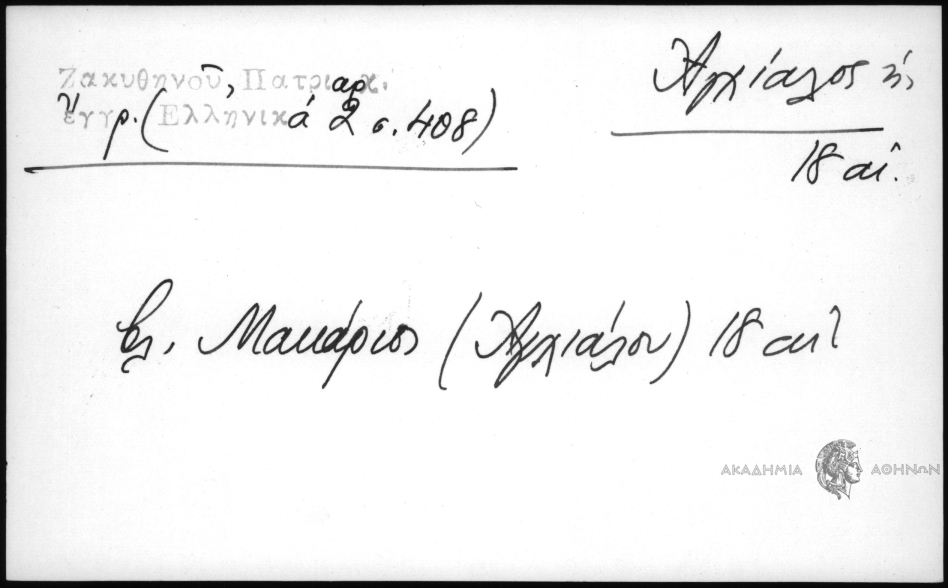 Ζακυθηνοῦ, Πατριαρχ.
ἔγγρ. (Ἑλληνικὰ 2 σ. 408)
Ἀγχίαλος ἡ,
18 αἰ.
βλ. Μακάριος (Ἀγχιάλου) 18 αἰ
ΑΚΑΔΗΜΙΑ ΑΘΗΝΩΝ